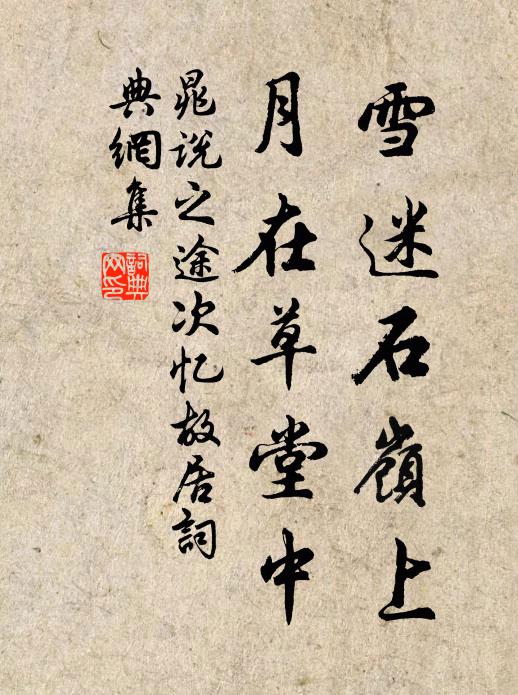 雪迷石嶺上
月在草堂中
晁说之途次忆故居詞
典網集
詞典网印